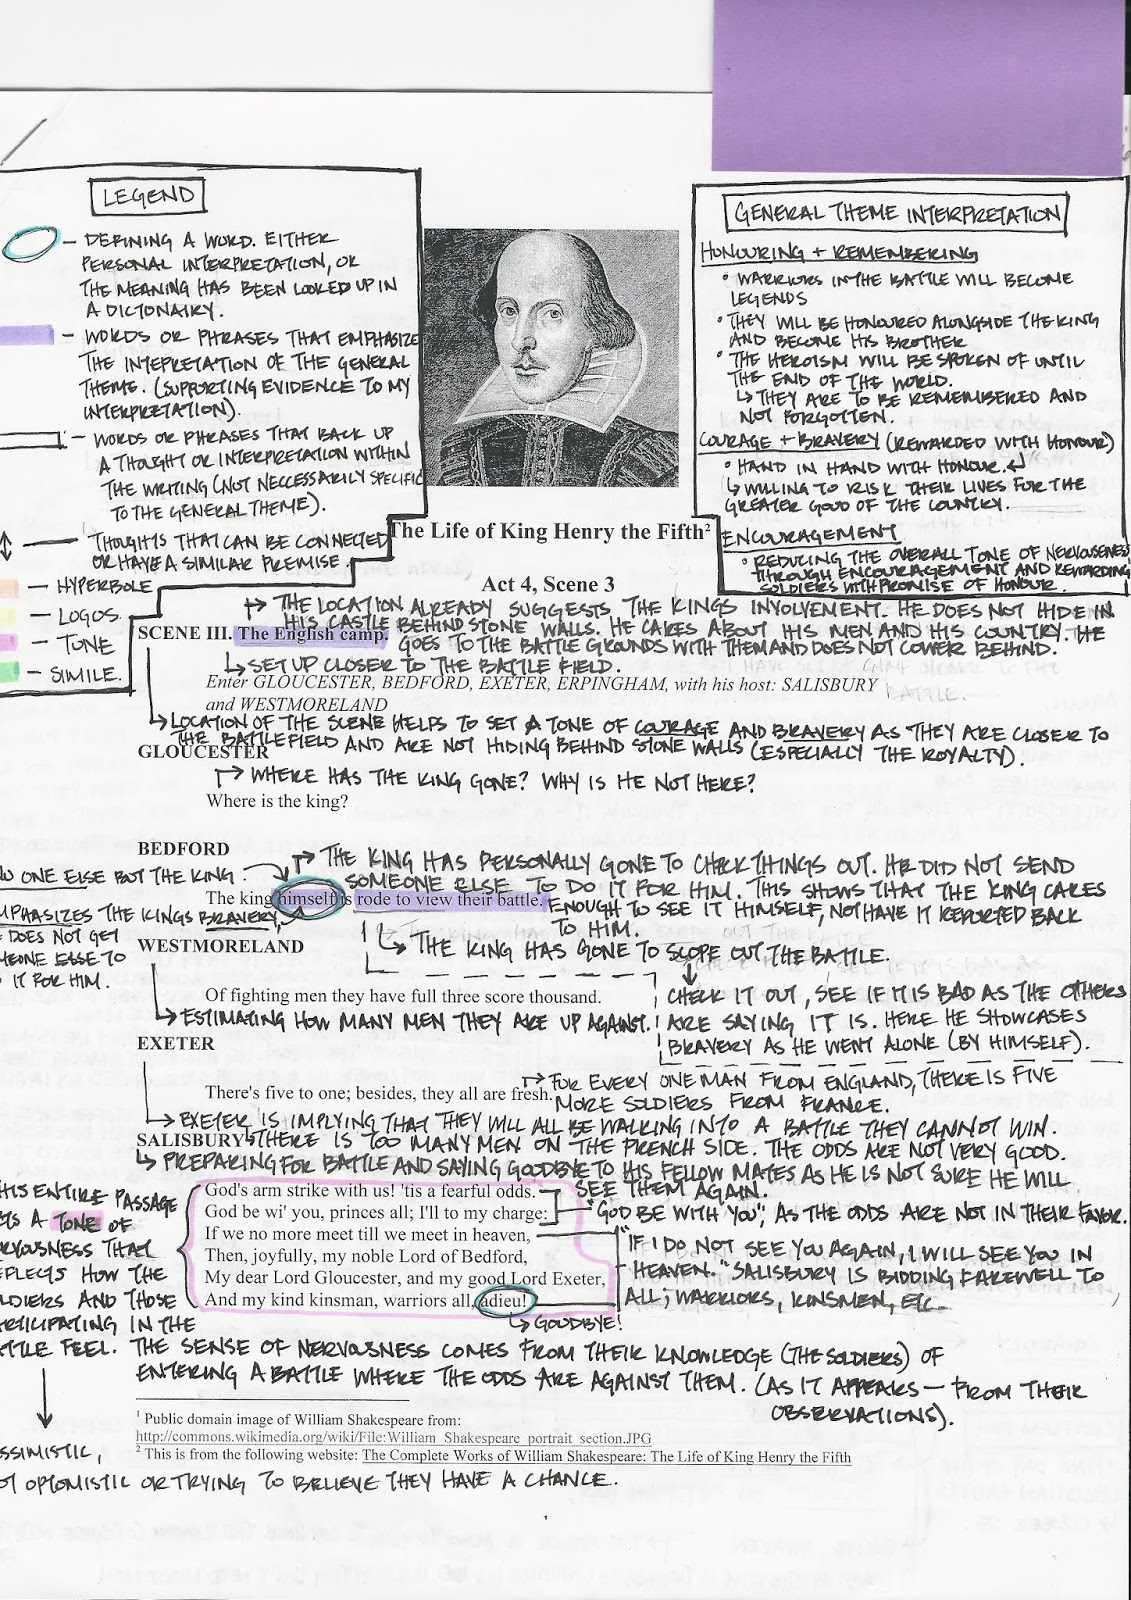 LEGEND
— DEFINING A WORD. EITHER
PERSONAL INTERPRETATION, OR
THE MEANING HAS BEEN LOOKED UP IN
A DICTONAIRY.
— WORDS OR PHRASES THAT EMPHASIZE
THE INTEPRETATION OF THE GENERAL
THEME. (SUPPORTING EVIDENCE TO MY
INTERPRETATION).
— WORDS OR PHRASES THAT BACK UP
A THOUGHT OR INTERPRETATION WITHIN
THE WRITING (NOT NECCESSARILY SPECIFIC
TO THE GENERAL THEME).
— THOUGHTS THAT CAN BE CONNECTED
OR HAVE A SIMILAR PREMISE.
— HYPERBOLE
— LOGOS
— TONE
— SIMILE.
GENERAL THEME INTERPRETATION
HONOURING + REMEMBERING
• WARRIORS IN THE BATTLE WILL BECOME
LEGENDS
• THEY WILL BE HONOURED ALONGSIDE THE KING
AND BECOME HIS BROTHER
• THE HEROISM WILL BE SPOKEN OF UNTIL
THE END OF THE WORLD.
↳ THEY ARE TO BE REMEMBERED AND
NOT FORGOTTEN.
COURAGE + BRAVERY (REWARDED WITH HONOUR)
• HAND IN HAND WITH HONOUR.
↳ WILLING TO RISK THEIR LIVES FOR THE
GREATER GOOD OF THE COUNTRY.
ENCOURAGEMENT
• REDUCING THE OVERALL TONE OF NERVOUSNESS
THROUGH ENCOURAGEMENT AND REWARDING
SOLDIERS WITH PROMISE OF HONOUR.
The Life of King Henry the Fifth²
Act 4, Scene 3
THE LOCATION ALREADY SUGGESTS THE KINGS INVOLVEMENT. HE DOES NOT HIDE IN
HIS CASTLE BEHIND STONE WALLS. HE CARES ABOUT HIS MEN AND HIS COUNTRY. HE
GOES TO THE BATTLE GROUNDS WITH THEM AND DOES NOT COWER BEHIND.
SCENE III. The English camp.
↳ SET UP CLOSER TO THE BATTLE FIELD.
Enter GLOUCESTER, BEDFORD, EXETER, ERPINGHAM, with his host: SALISBURY
and WESTMORELAND
LOCATION OF THE SCENE HELPS TO SET A TONE OF COURAGE AND BRAVERY AS THEY ARE CLOSER TO
THE BATTLEFIELD AND ARE NOT HIDING BEHIND STONE WALLS (ESPECIALLY THE ROYALTY).
GLOUCESTER
WHERE HAS THE KING GONE? WHY IS HE NOT HERE?
Where is the king?
BEDFORD
THE KING HAS PERSONALLY GONE TO CHECK THINGS OUT. HE DID NOT SEND
SOMEONE ELSE TO DO IT FOR HIM. THIS SHOWS THAT THE KING CARES
ENOUGH TO SEE IT HIMSELF, NOT HAVE IT REPORTED BACK
TO HIM.
ONE ELSE BUT THE KING.
The king himself is rode to view their battle.
THE KINGS BRAVERY,
DOES NOT GET
ELSE TO
IT FOR HIM.
↳ THE KING HAS GONE TO SCOPE OUT THE BATTLE.
WESTMORELAND
CHECK IT OUT, SEE IF IT IS BAD AS THE OTHERS
ARE SAYING IT IS. HERE HE SHOWCASES
BRAVERY AS HE WENT ALONE (BY HIMSELF).
Of fighting men they have full three score thousand.
ESTIMATING HOW MANY MEN THEY ARE UP AGAINST.
EXETER
FOR EVERY ONE MAN FROM ENGLAND, THERE IS FIVE
MORE SOLDIERS FROM FRANCE.
There's five to one; besides, they all are fresh.
EXETER IS IMPLYING THAT THEY WILL ALL BE WALKING INTO A BATTLE THEY CANNOT WIN.
THERE IS TOO MANY MEN ON THE FRENCH SIDE. THE ODDS ARE NOT VERY GOOD.
SALISBURY
↳ PREPARING FOR BATTLE AND SAYING GOODBYE TO HIS FELLOW MATES AS HE IS NOT SURE HE WILL
SEE THEM AGAIN.
God's arm strike with us! 'tis a fearful odds.
God be wi' you, princes all; I'll to my charge:
If we no more meet till we meet in heaven,
Then, joyfully, my noble Lord of Bedford,
My dear Lord Gloucester, and my good Lord Exeter,
And my kind kinsman, warriors all, adieu!
"GOD BE WITH YOU", AS THE ODDS ARE NOT IN THEIR FAVOR.
"IF I DO NOT SEE YOU AGAIN, I WILL SEE YOU IN
HEAVEN." SALISBURY IS BIDDING FAREWELL TO
ALL; WARRIORS, KINSMEN, ETC.
↳ GOODBYE!
ENTIRE PASSAGE
A TONE OF
THAT
HOW THE
AND THOSE
IN THE
FEEL. THE SENSE OF NERVOUSNESS COMES FROM THEIR KNOWLEDGE (THE SOLDIERS) OF
ENTERING A BATTLE WHERE THE ODDS ARE AGAINST THEM. (AS IT APPEARS — FROM THEIR
OBSERVATIONS).
OPTOMISTIC OR TRYING TO BELIEVE THEY HAVE A CHANCE.
¹ Public domain image of William Shakespeare from:
http://commons.wikimedia.org/wiki/File:William_Shakespeare_portrait_section.JPG
² This is from the following website: The Complete Works of William Shakespeare: The Life of King Henry the Fifth